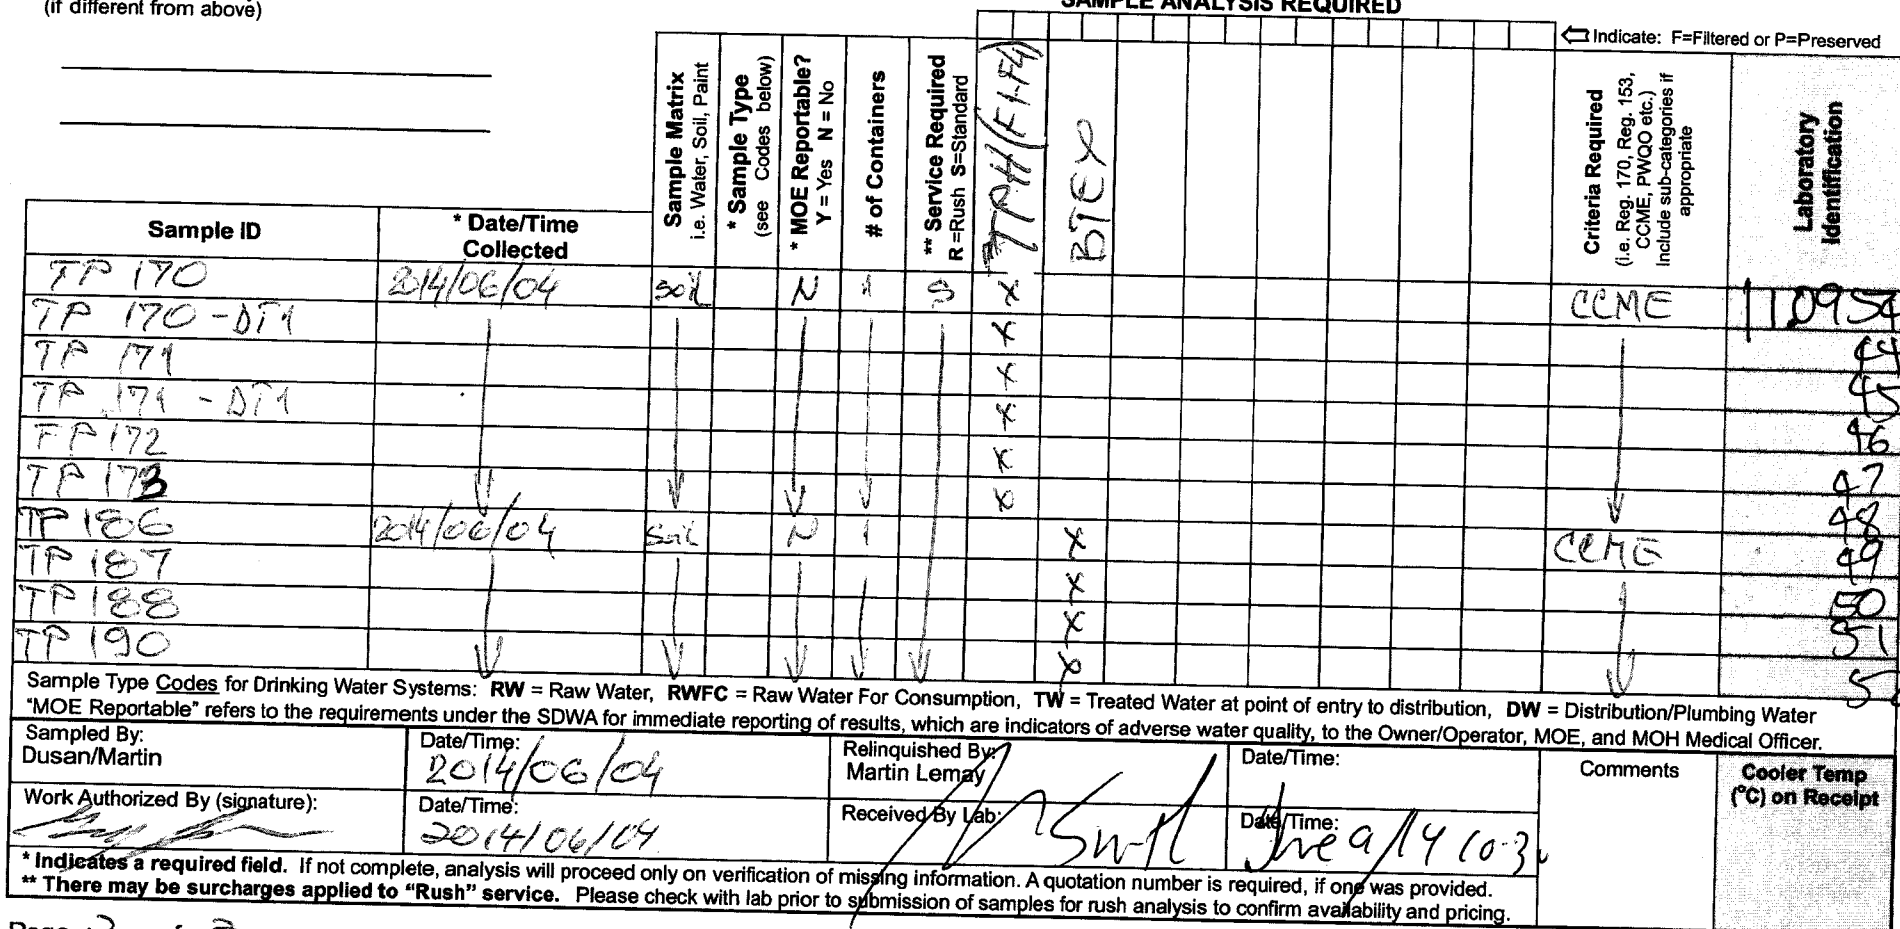 (if different from above)
SAMPLE ANALYSIS REQUIRED
Indicate: F=Filtered or P=Preserved
Sample ID
* Date/Time Collected
Sample Matrix
i.e. Water, Soil, Paint
* Sample Type
(see Codes below)
* MOE Reportable?
Y = Yes N = No
# of Containers
** Service Required
R =Rush S=Standard
TPH(F1-F4)
BTEX
Criteria Required
(i.e. Reg. 170, Reg. 153,
CCME, PWQO etc.)
Include sub-categories if
appropriate
Laboratory
Identification
TP 170 2014/06/04 soil N 1 S X CCME 110954
TP 170 -DT1 X 44
TP 171 X 45
TP 171 -DT1 X 46
TP 172 X 47
TP 173 X 48
TP 186 2014/06/04 Soil N 1 X CCME 49
TP 187 X 50
TP 188 X 51
TP 190 X
Sample Type Codes for Drinking Water Systems: RW = Raw Water, RWFC = Raw Water For Consumption, TW = Treated Water at point of entry to distribution, DW = Distribution/Plumbing Water
"MOE Reportable" refers to the requirements under the SDWA for immediate reporting of results, which are indicators of adverse water quality, to the Owner/Operator, MOE, and MOH Medical Officer.
Sampled By:
Dusan/Martin
Date/Time:
2014/06/04
Relinquished By:
Martin Lemay
Date/Time:
Comments
Cooler Temp
(°C) on Receipt
Work Authorized By (signature):
Date/Time:
2014/06/04
Received By Lab:
Date/Time:
June 9/14 10:3
* Indicates a required field. If not complete, analysis will proceed only on verification of missing information. A quotation number is required, if one was provided.
** There may be surcharges applied to “Rush” service. Please check with lab prior to submission of samples for rush analysis to confirm availability and pricing.